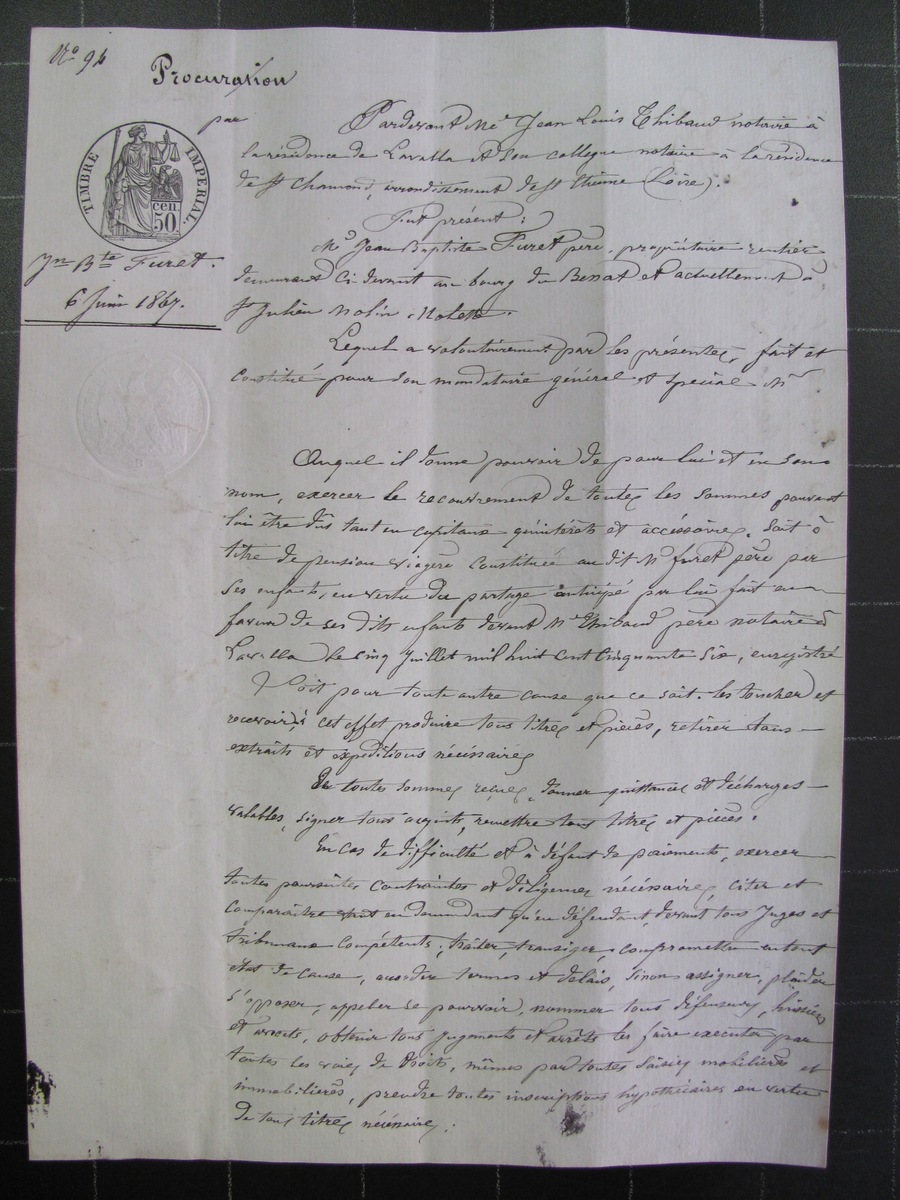 No 94
Procuration
par
TIMBRE IMPERIAL
cen.
50.
Jn Bte Furet.
6 Juin 1867.
Pardevant Me Jean Louis Thibaud notaire à
la résidence de Lavalla et son collegue notaire à la résidence
de St Chamond, arrondissement de St Etienne (Loire).
Fut présent:
Mr Jean Baptiste Furet père, propriétaire rentier
demeurant ci devant au bourg du Bessat et actuellement à
St Julien Molin Molette.
Lequel a volontairement par les présentes, fait et
constitué pour son mandataire général et spécial Mr
Auquel il donne pouvoir de pour lui et en son
nom, exercer le recouvrement de toutes les sommes pouvant
lui être dûs tant en capitaux qu'intérêts et accéssoires. Soit à
titre de pension viagère constituée au dit Mr furet père par
ses enfants, en vertu du partage anticipé par lui fait en
faveur de ses dits enfants devant Me Thibaud père notaire à
Lavalla le cinq Juillet mil huit cent cinquante six, enregistré
Soit pour toute autre cause que ce soit les toucher et
recevoir, à cet effet produire tous titres et pièces, retirer tous
extraits et expéditions nécéssaires
De toutes sommes reçues, donner quittances et décharges
valables, signer tous acquits, remettre tous titres et pièces.
En cas de difficulté et à défaut de paiements, exercer
toutes poursuites contraintes et diligences nécéssaires, citer et
comparaître tant en demandant qu'en défendant, devant tous Juges et
tribunaux compétents; traiter, transiger, compromettre en tout
état de cause, accorder termes et délais, sinon assigner, plaider
s'opposer, appeler se pourvoir, nommer tous défenseurs, huissiers
et avocats, obtenir tous jugements et arrêts les faire exécuter par
toutes les voies de droits, mêmes par toutes saisies mobilières et
immobilières, prendre toutes inscriptions hypothécaires en vertu
de tous titres nécéssaires;